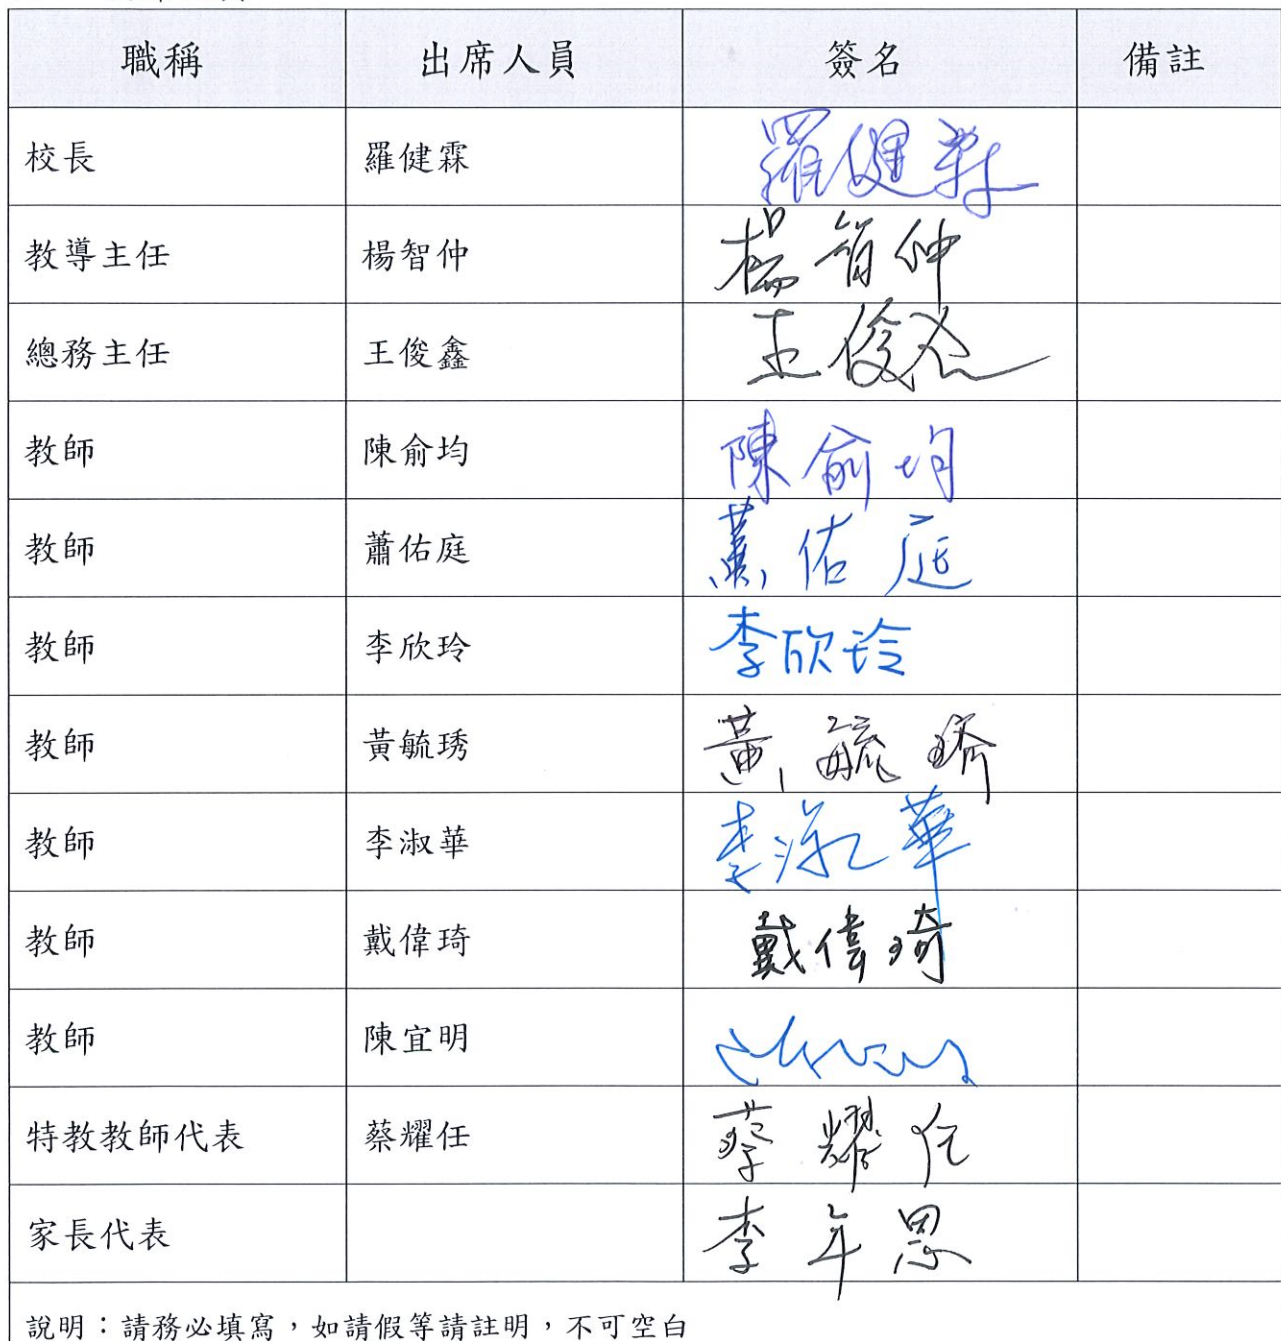 職稱 出席人員 簽名 備註
校長 羅健霖 羅健霖
教導主任 楊智仲 楊智仲
總務主任 王俊鑫 王俊鑫
教師 陳俞均 陳俞均
教師 蕭佑庭 蕭佑庭
教師 李欣玲 李欣玲
教師 黃毓琇 黃毓琇
教師 李淑華 李淑華
教師 戴偉琦 戴偉琦
教師 陳宜明
特教教師代表 蔡耀任 蔡耀任
家長代表 李年恩
說明：請務必填寫，如請假等請註明，不可空白